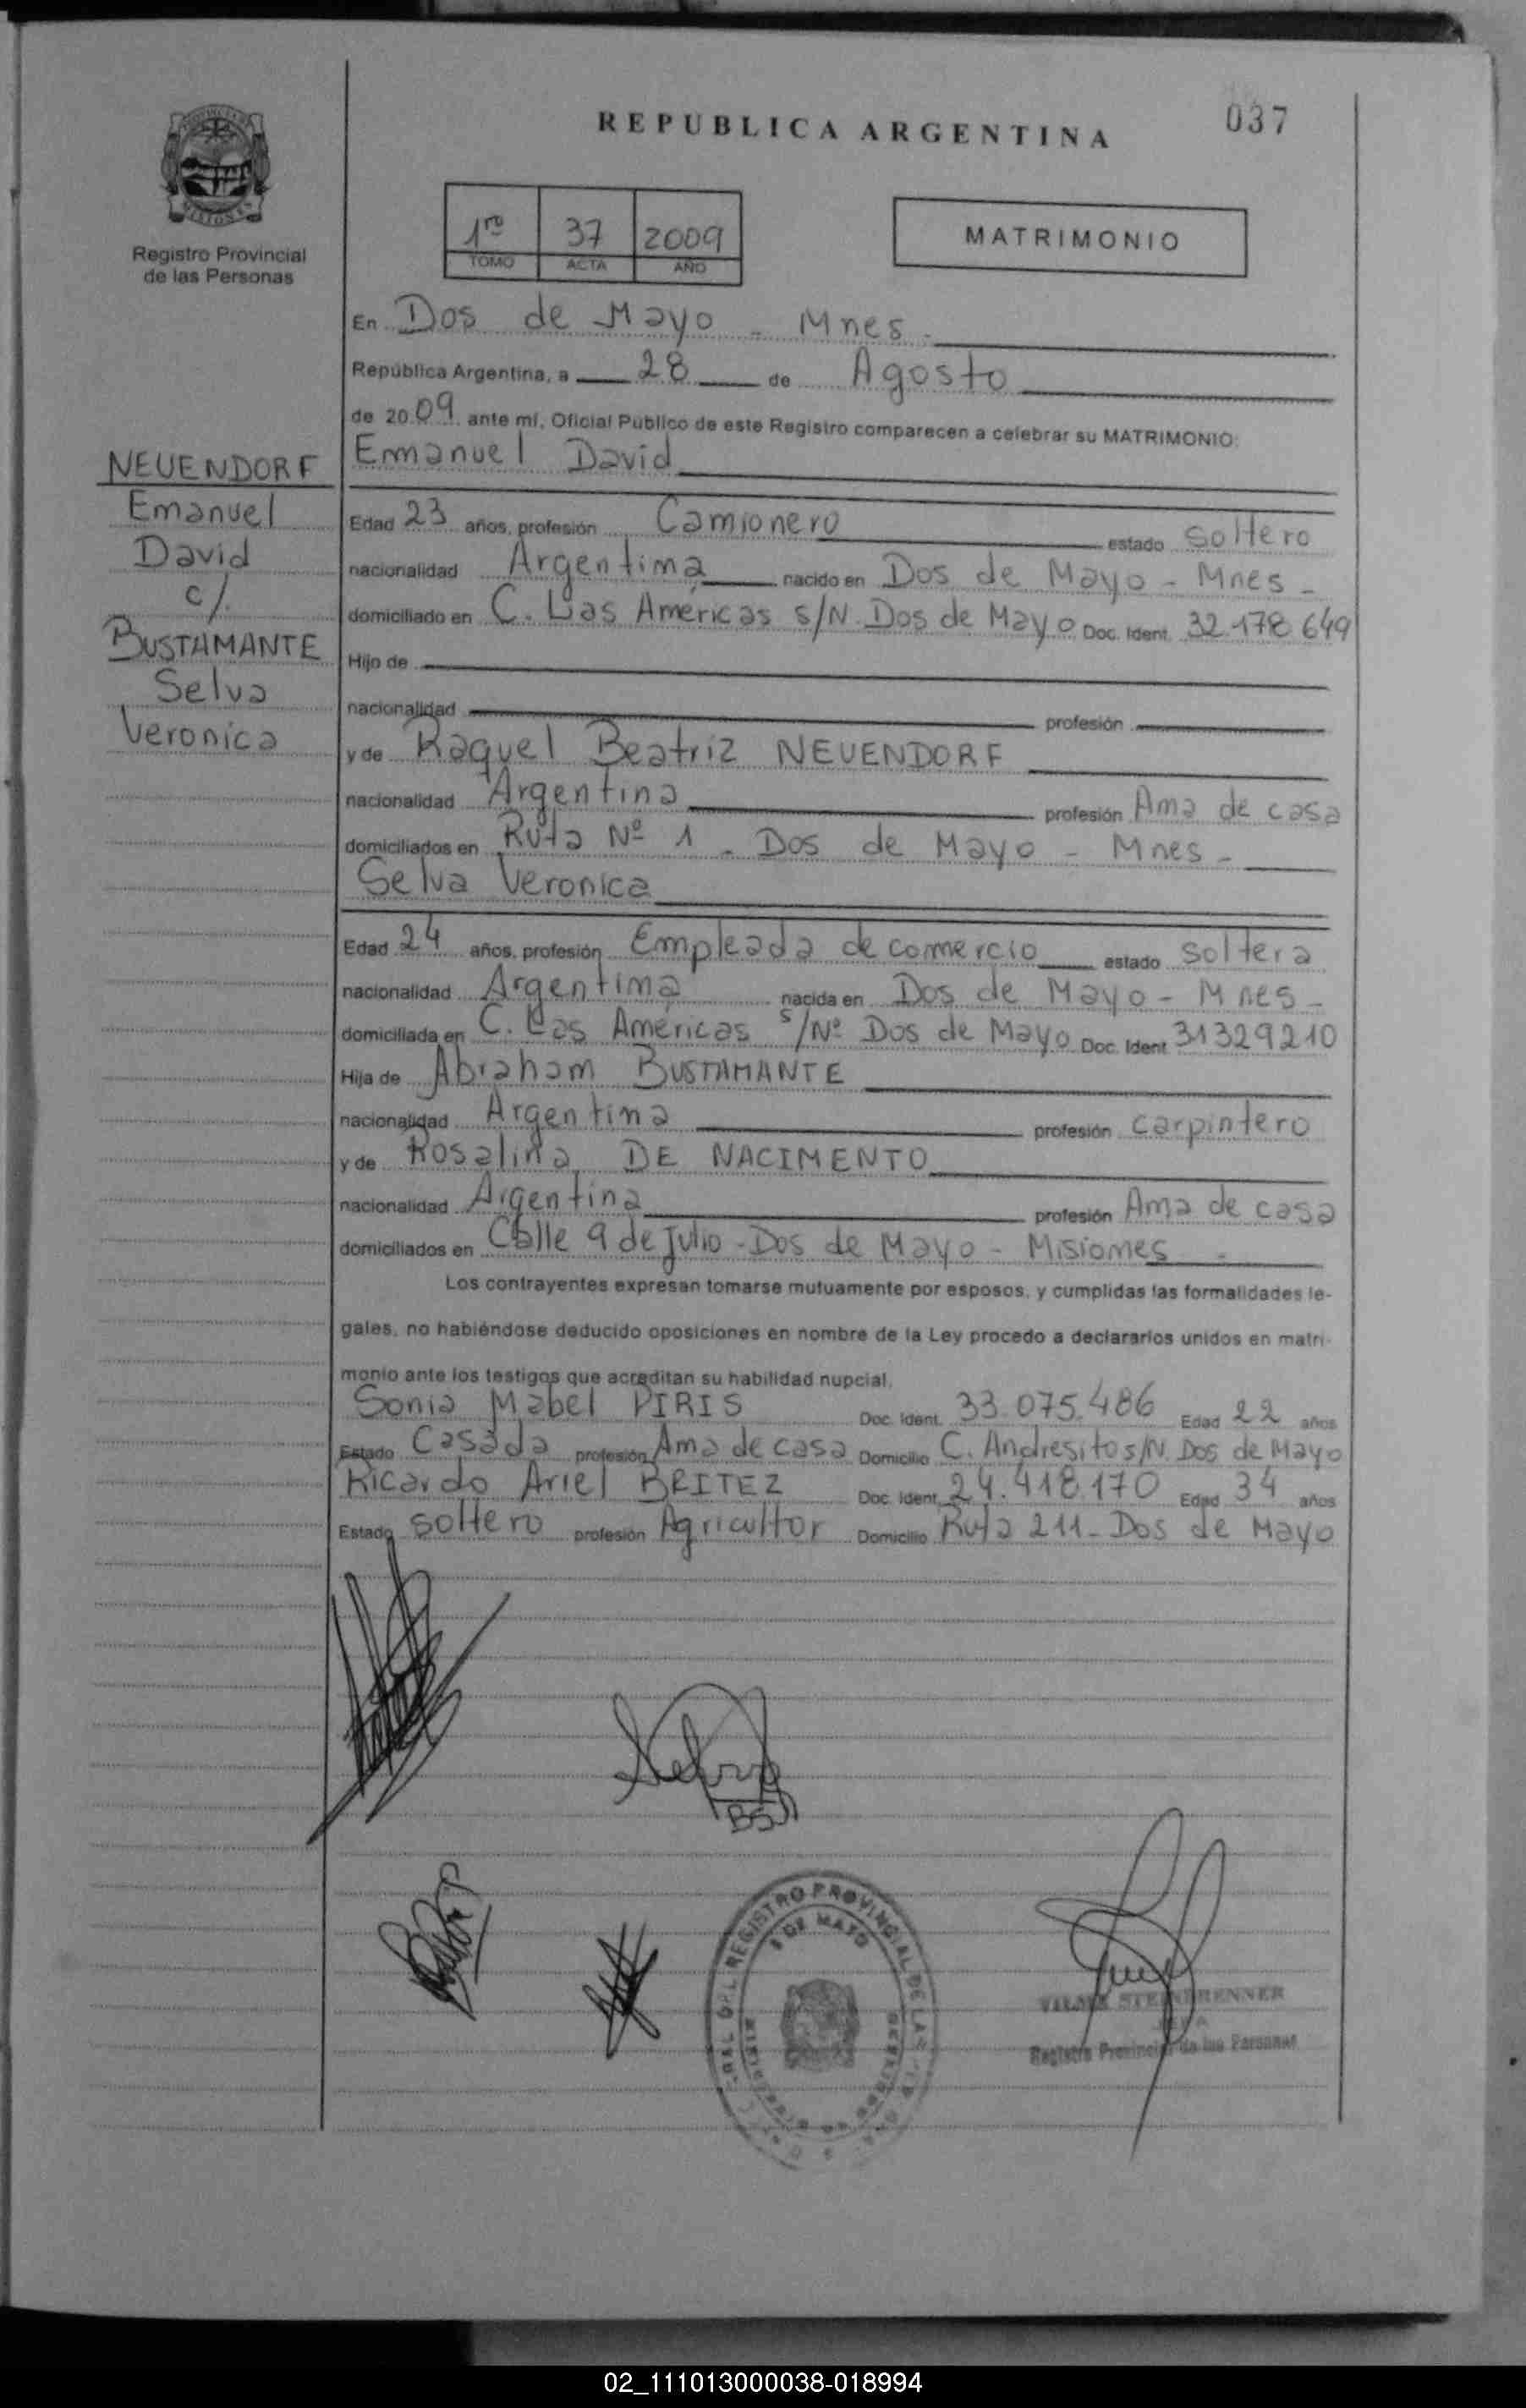 037
REPUBLICA ARGENTINA
PROVINCIA
MISIONES
Registro Provincial
de las Personas
1ro 37 2009
TOMO ACTA AÑO
MATRIMONIO
En Dos de Mayo - Mnes.
República Argentina, a 28 de Agosto
de 2009 ante mí, Oficial Público de este Registro comparecen a celebrar su MATRIMONIO:
NEUENDORF
Emanuel
David
c/.
BUSTAMANTE
Selva
Veronica
Emanuel David
Edad 23 años, profesión Camionero estado Soltero
nacionalidad Argentina nacido en Dos de Mayo - Mnes -
domiciliado en C. Las Américas s/N. Dos de Mayo Doc. Ident. 32.178.649
Hijo de
nacionalidad profesión
y de Raquel Beatriz NEUENDORF
nacionalidad Argentina profesión Ama de casa
domiciliados en Ruta Nº 1 - Dos de Mayo - Mnes -
Selva Veronica
Edad 24 años, profesión Empleada de comercio estado Soltera
nacionalidad Argentina nacida en Dos de Mayo - Mnes -
domiciliada en C. Las Américas s/Nº Dos de Mayo Doc. Ident 31329210
Hija de Abraham BUSTAMANTE
nacionalidad Argentina profesión Carpintero
y de Rosalina DE NACIMENTO
nacionalidad Argentina profesión Ama de casa
domiciliados en Calle 9 de Julio - Dos de Mayo - Misiones -
Los contrayentes expresan tomarse mutuamente por esposos, y cumplidas las formalidades le-
gales, no habiéndose deducido oposiciones en nombre de la Ley procedo a declararlos unidos en matri-
monio ante los testigos que acreditan su habilidad nupcial.
Sonia Mabel PIRIS Doc. Ident. 33.075.486 Edad 22 años
Estado Casada profesión Ama de casa Domicilio C. Andresito s/N. Dos de Mayo
Ricardo Ariel BRITEZ Doc. Ident. 24.418.170 Edad 34 años
Estado Soltero profesión Agricultor Domicilio Ruta 211 - Dos de Mayo
Selva
BS
REGISTRO PROVINCIAL DE LAS
DE MAYO
VILMA STEINBRENNER
JEFA
Registro Provincial de las Personas
02_111013000038-018994